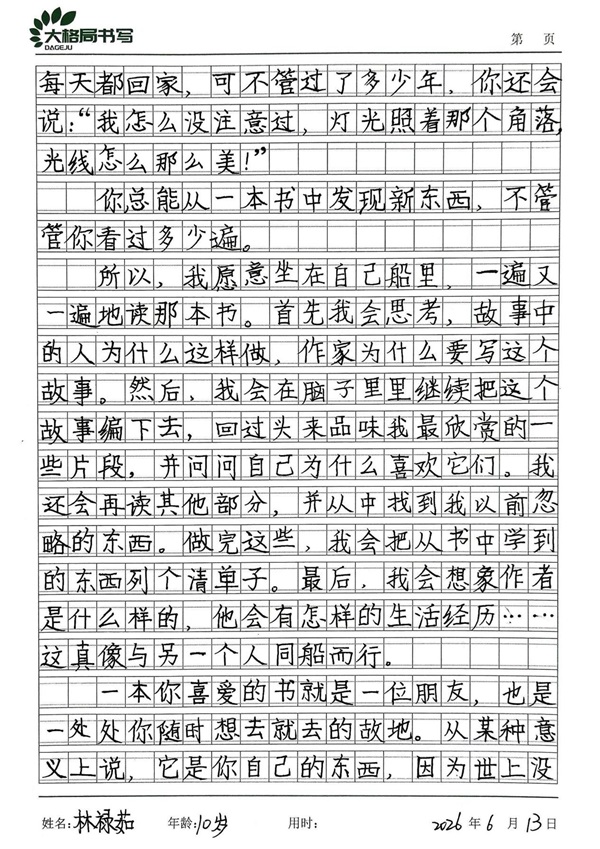 大格局书写
DAGEJU
第 页
每天都回家，可不管过了多少年，你还会
说：“我怎么没注意过，灯光照着那个角落，
光线怎么那么美！”
你总能从一本书中发现新东西，不管
管你看过多少遍。
所以，我愿意坐在自己船里，一遍又
一遍地读那本书。首先我会思考，故事中
的人为什么这样做，作家为什么要写这个
故事。然后，我会在脑子里里继续把这个
故事编下去，回过头来品味我最欣赏的一
些片段，并问问自己为什么喜欢它们。我
还会再读其他部分，并从中找到我以前忽
略的东西。做完这些，我会把从书中学到
的东西列个清单子。最后，我会想象作者
是什么样的，他会有怎样的生活经历……
这真像与另一个人同船而行。
一本你喜爱的书就是一位朋友，也是
一处处你随时想去就去的故地。从某种意
义上说，它是你自己的东西，因为世上没
姓名：林禄茹 年龄：10岁 用时： 2026年6月13日